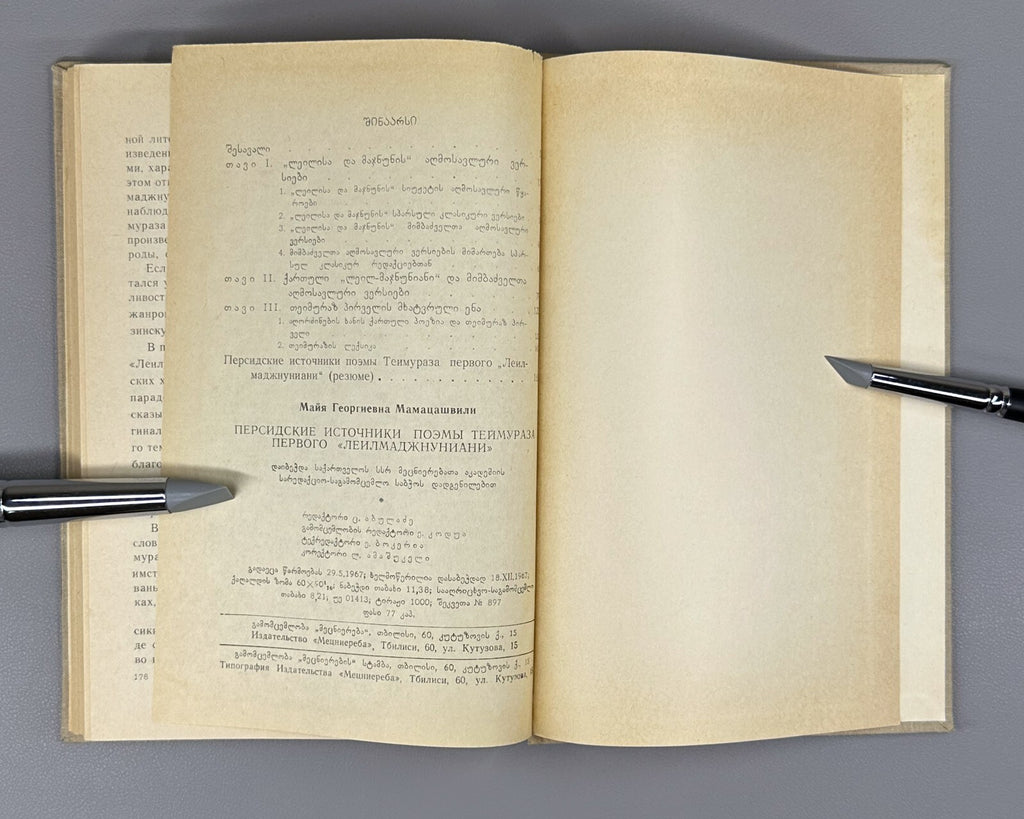 ной
изведен
ми, хара
этом от
маджну
наблюд
мураза
произве
роды,
Есл
тался
ливост
жанро
зинску
В п
«Леил
ских х
парад
сказы
гинал
го тем
благо
В
слов
мура
имст
вань
ках,
сик
де с
во
178
შინაარსი
შესავალი . . . . . . . . . .
თავი I. „ლეილისა და მაჯნუნის“ აღმოსავლური ვერ-
სიები . . . . . . . .
1. „ლეილისა და მაჯნუნის“ სიუჟეტის აღმოსავლური წყა-
როები . . . . . . . .
2. „ლეილისა და მაჯნუნის“ სპარსული კლასიკური ვერსიები .
3. „ლეილისა და მაჯნუნის“ მიმბაძველთა აღმოსავლური
ვერსიები . . . . . . . .
4. მიმბაძველთა აღმოსავლური ვერსიების მიმართება სპარ-
სულ კლასიკურ რედაქციებთან . . . .
თავი II. ქართული „ლეილ-მაჯნუნიანი“ და მიმბაძველთა
აღმოსავლური ვერსიები . . . .
თავი III. თეიმურაზ პირველის მხატვრული ენა .
1. აღორძინების ხანის ქართული პოეზია და თეიმურაზ პირ-
ველი . . . . . . . .
2. თეიმურაზის ლექსიკა . . . . . .
Персидские источники поэмы Теймураза первого „Леил-
маджнуниани“ (резюме) . . . . . . . . . .
Майя Георгиевна Мамацашвили
ПЕРСИДСКИЕ ИСТОЧНИКИ ПОЭМЫ ТЕЙМУРАЗА
ПЕРВОГО «ЛЕИЛМАДЖНУНИАНИ»
დაიბეჭდა საქართველოს სსრ მეცნიერებათა აკადემიის
სარედაქციო-საგამომცემლო საბჭოს დადგენილებით
რედაქტორი ც. აბულაძე
გამომცემლობის რედაქტორი ე. კოდუა
ტექრედაქტორი ე. ბოკერია
კორექტორი ლ. ამაშუკელი
გადაეცა წარმოებას 29.5.1967; ხელმოწერილია დასაბეჭდად 18.XII.1967;
ქაღალდის ზომა 60×90¹/₁₆; ნაბეჭდი თაბახი 11,38; სააღრიცხვო-საგამომცემლო
თაბახი 8,21; უე 01413; ტირაჟი 1000; შეკვეთა № 897
ფასი 77 კაპ.
გამომცემლობა „მეცნიერება“, თბილისი, 60, კუტუზოვის ქ., 15
Издательство «Мецниереба», Тбилиси, 60, ул. Кутузова, 15
გამომცემლობა „მეცნიერების“ სტამბა, თბილისი, 60, კუტუზოვის ქ., 15
Типография Издательства «Мецниереба», Тбилиси, 60, ул. Кутузова,